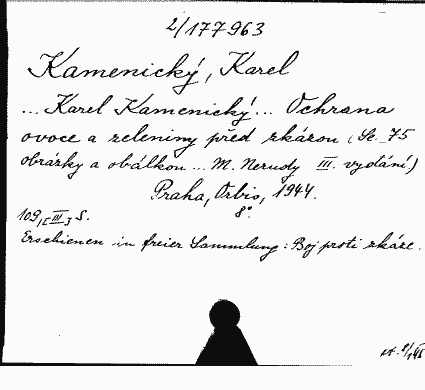 2/177963
Kamenický, Karel
... Karel Kamenický ... Ochrana
ovoce a zeleniny před zkázou (Se 75
obrázky a obálkou ... M. Nerudy III. vydání)
Praha, Orbis, 1944.
8°.
109, [III] S.
Erschienen in freier Sammlung: Boj proti zkáze.